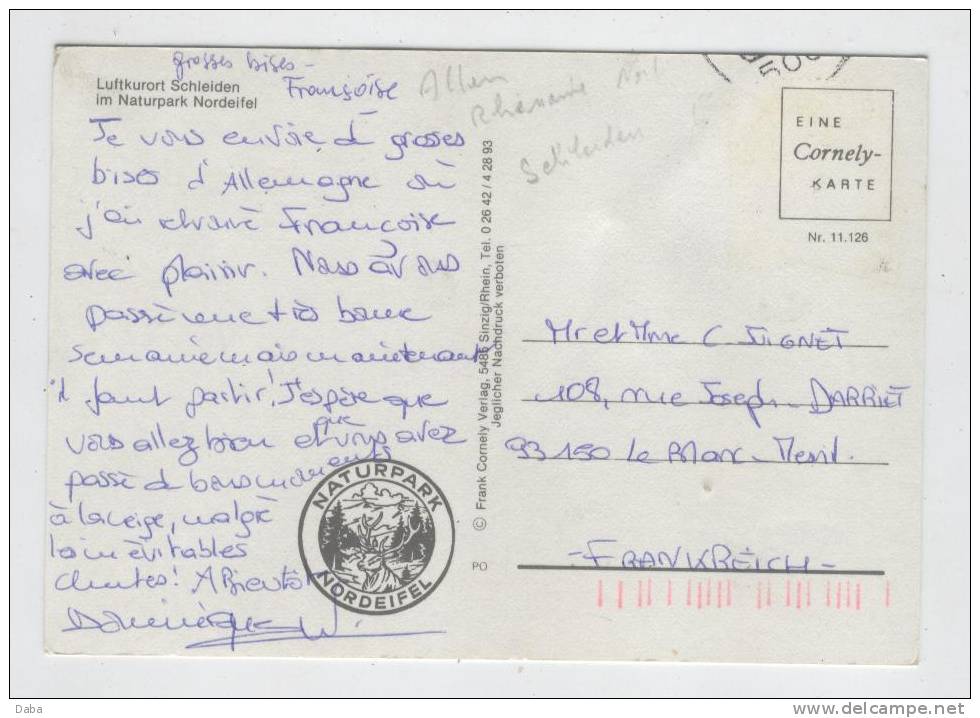 grosses bises -
Françoise
Luftkurort Schleiden
im Naturpark Nordeifel
Je vous envoie de grosses
bises d'Allemagne où
j'ai retrouvé Françoise
avec plaisir. Nous avons
passé une très bonne
semaine mais maintenant
il faut partir! J'espère que
vous allez bien et que vous avez
passé de bons moments
à la neige, malgré
les inévitables
chutes! A Bientôt
Dominique
NATURPARK
NORDEIFEL
© Frank Cornely Verlag, 5485 Sinzig/Rhein, Tel. 0 26 42 / 4 28 93
Jeglicher Nachdruck verboten
PO
Allem
Rhénanie Nord
Schleiden
500
EINE
Cornely-
KARTE
Nr. 11.126
Mr et Mme C
108, rue Joseph DARRIET
93150 Le Blanc-Mesnil.
-FRANKREICH-
Daba
www.delcampe.net